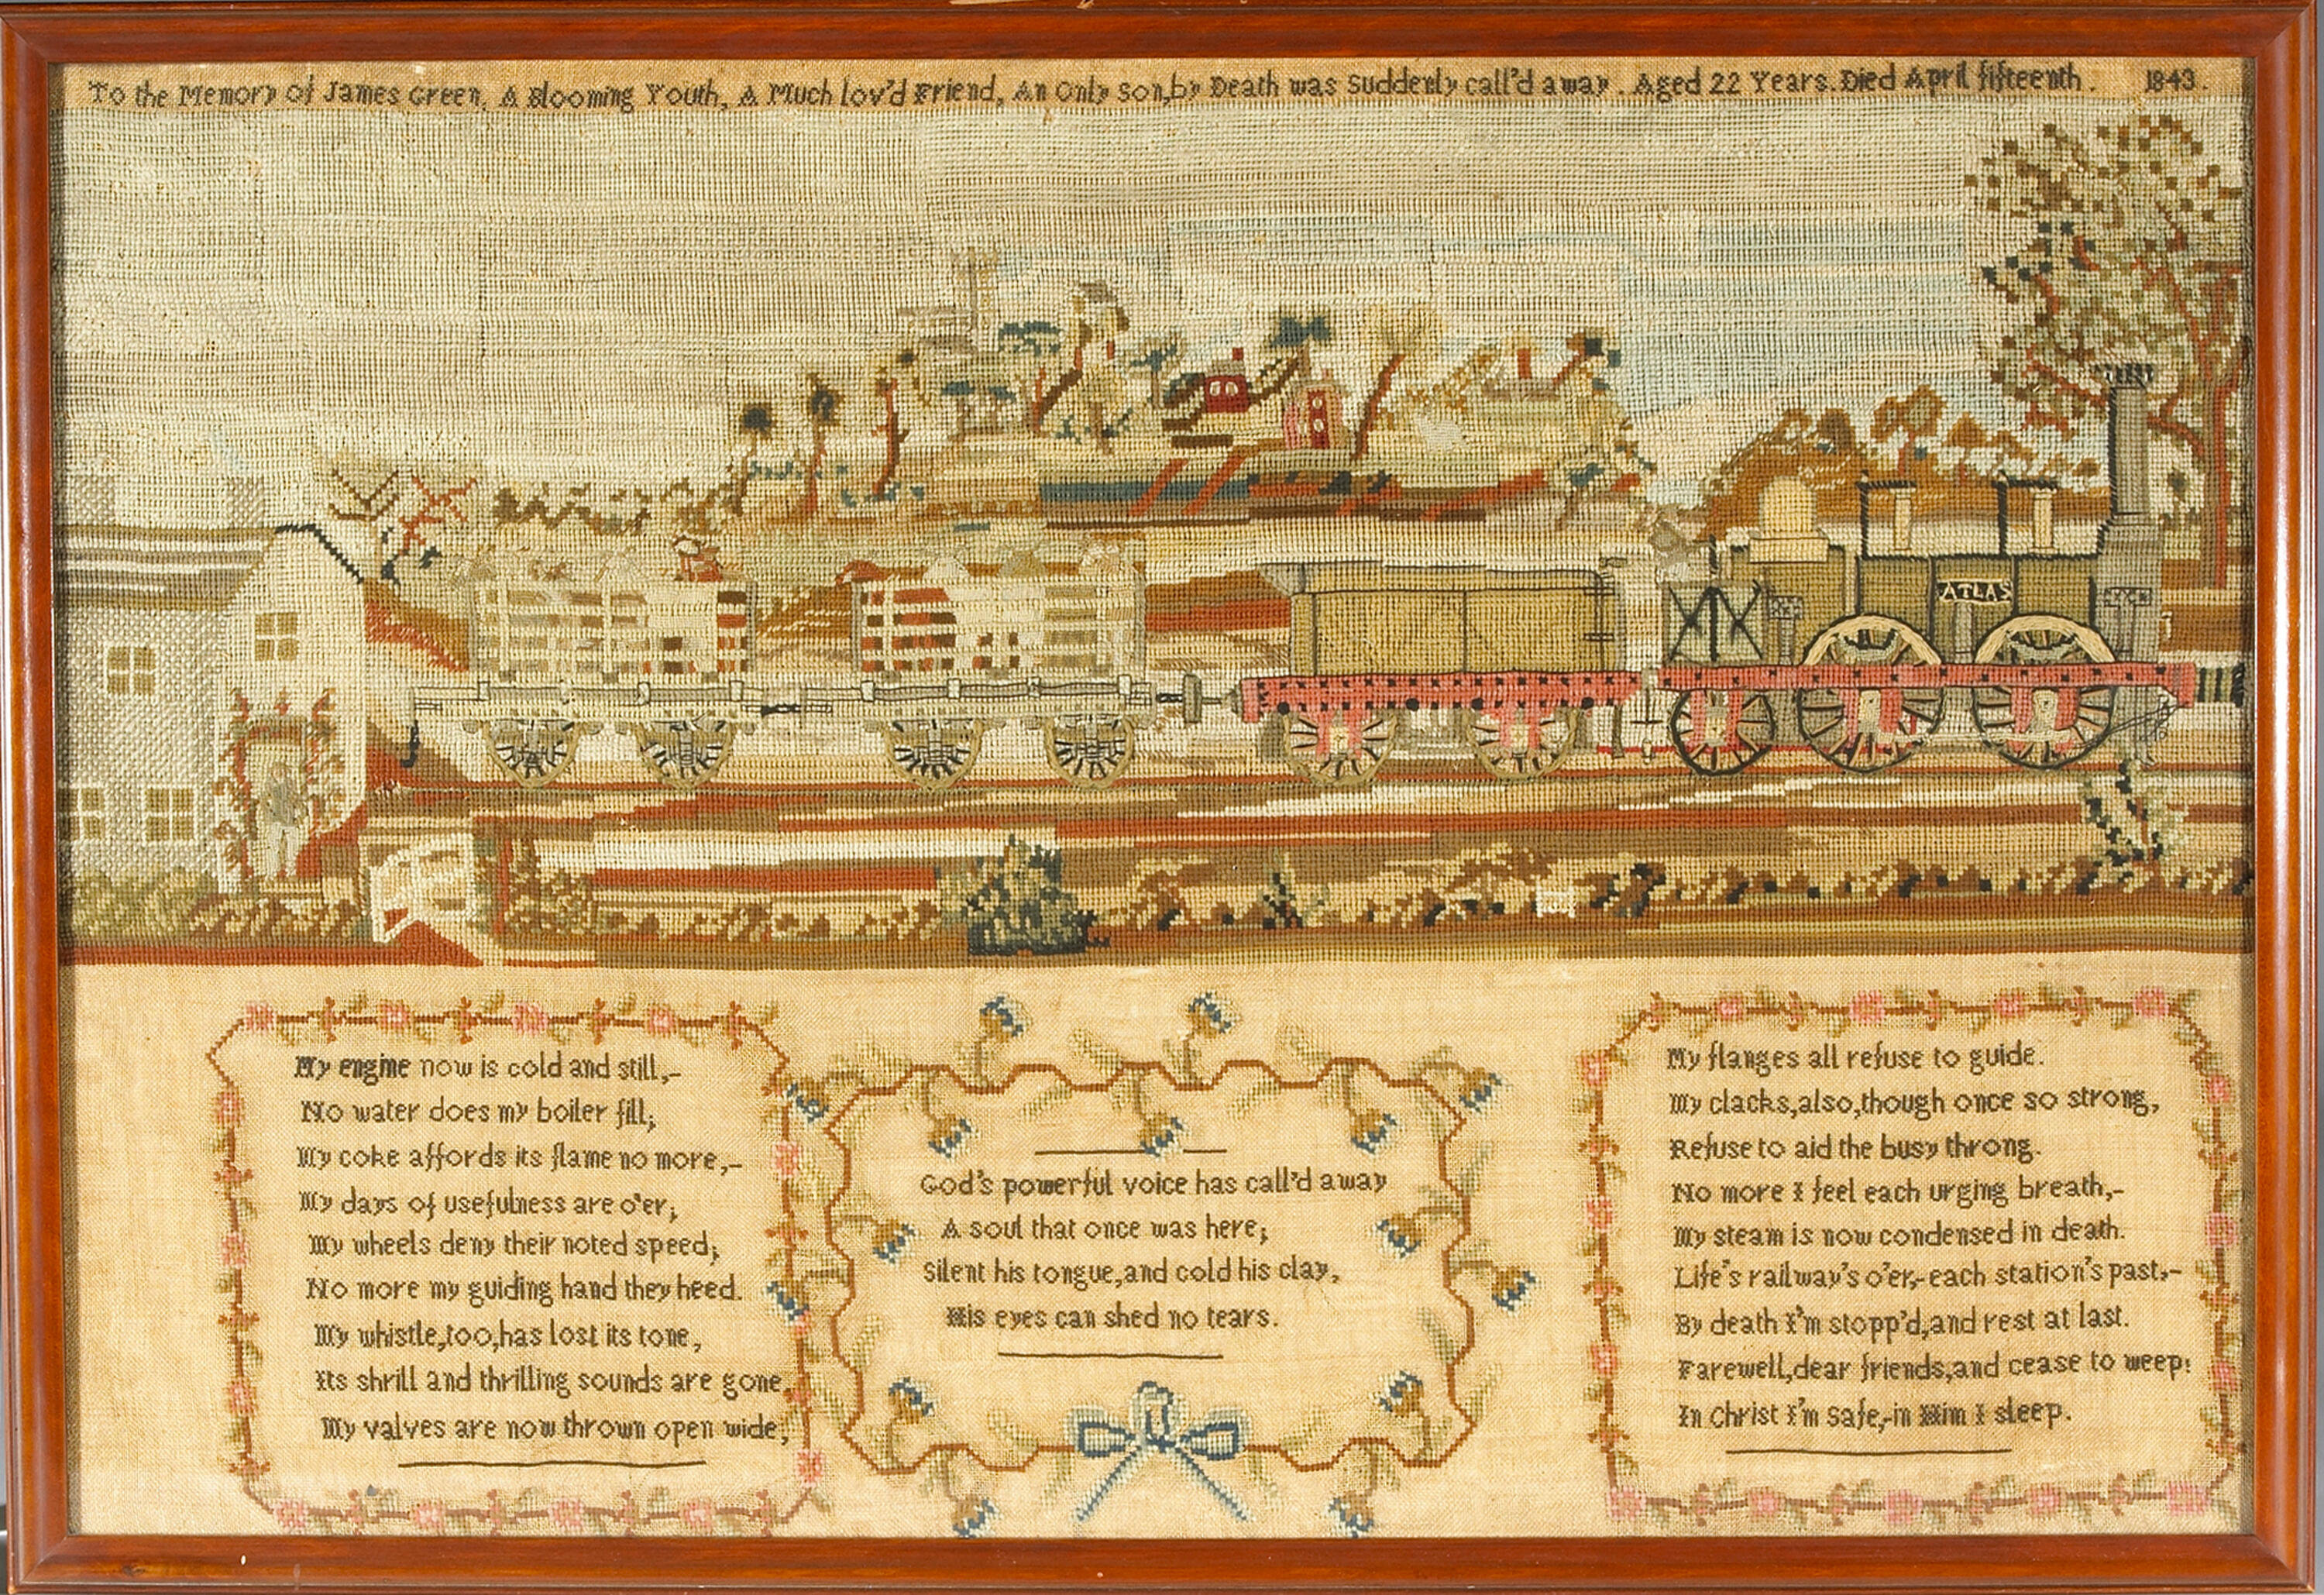 To the Memory of James Green, A Blooming Youth, A Much lov'd Friend, An Only Son, by Death was Suddenly call'd away. Aged 22 Years. Died April fifteenth. 1843.
ATLAS
My engine now is cold and still,-
No water does my boiler fill;
My coke affords its flame no more,-
My days of usefulness are o'er;
My wheels deny their noted speed;
No more my guiding hand they heed.
My whistle, too, has lost its tone,
Its shrill and thrilling sounds are gone,
My valves are now thrown open wide;
God's powerful voice has call'd away
A soul that once was here;
Silent his tongue, and cold his clay,
His eyes can shed no tears.
My flanges all refuse to guide.
My clacks, also, though once so strong,
Refuse to aid the busy throng.
No more I feel each urging breath,-
My steam is now condensed in death.
Life's railway's o'er,- each station's past,-
By death I'm stopp'd, and rest at last.
Farewell, dear friends, and cease to weep:
In Christ I'm Safe,-in Him I sleep.